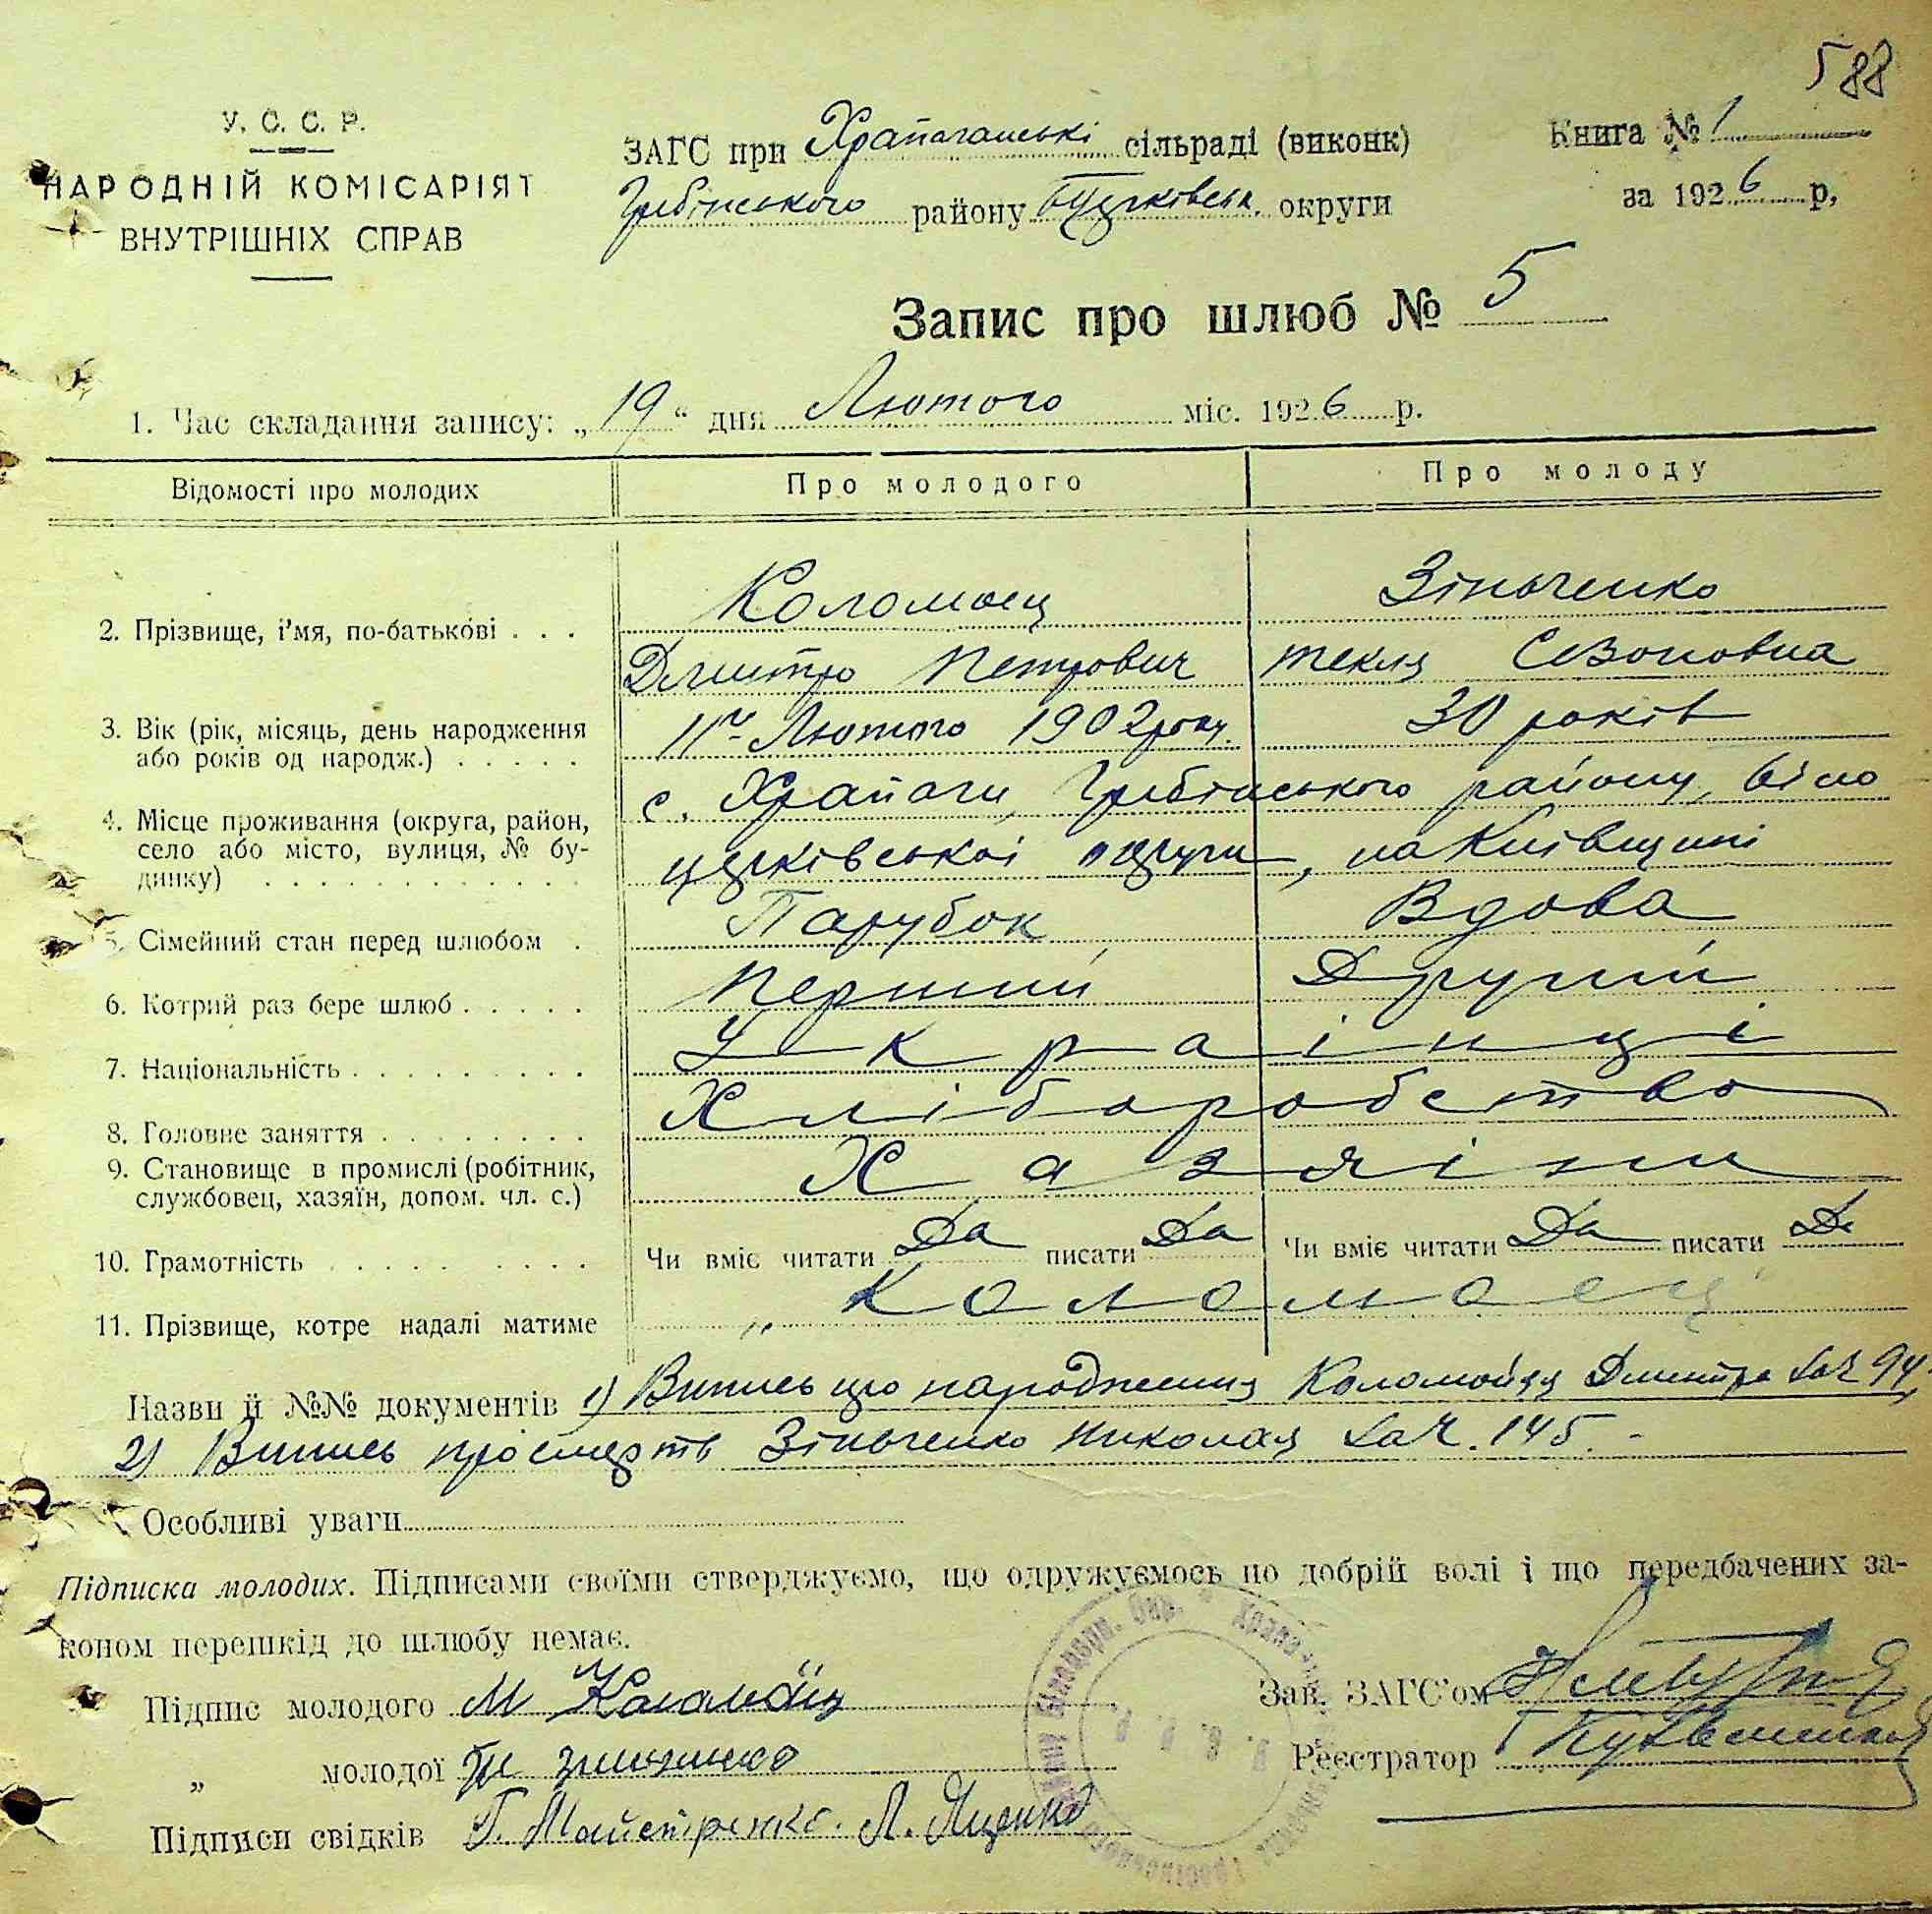 588
У. С. С. Р.
НАРОДНІЙ КОМІСАРІЯТ
ВНУТРІШНІХ СПРАВ
ЗАГС при Храпачанські сільраді (виконк)
Гребінського району Б Церківськ. округи
Книга № 1
за 1926 р,
Запис про шлюб № 5
1. Час складання запису: „19“ дня Лютого міс. 1926 р.
Відомості про молодих
Про молодого
Про молоду
2. Прізвище, і'мя, по-батькові . . .
Коломоец
Зіньченко
Дмитро Петрович
Текля Созоновна
3. Вік (рік, місяць, день народження
або років од народж.) . . . . .
11го Лютого 1902 року.
30 років
4. Місце проживання (округа, район,
село або місто, вулиця, № бу-
динку) . . . . . . . . . . . .
с. Храпачи Гребінського району, Біло
церківської округи, на Київщині
5. Сімейний стан перед шлюбом .
Парубок
Вдова
6. Котрий раз бере шлюб . . . . .
Перший
Другий
7. Національність . . . . . . . . .
Українці
8. Головне заняття . . . . . . . .
Хліборобство
9. Становище в промислі (робітник,
службовец, хазяїн, допом. чл. с.)
Хазяіни
10. Грамотність . . . . . . . . . .
Чи вміє читати Да писати Да
Чи вміє читати Да писати Да
11. Прізвище, котре надалі матиме
„ Коломоец
Назви й №№ документів 1) Випись про народження Коломойця Дмитра за № 94,
2) Випись про смерть Зіньченко Николая за №. 145. -
Особливі уваги
Підписка молодих. Підписами своїми стверджуємо, що одружуємось по добрій волі і що передбачених за-
коном перешкід до шлюбу немає.
Підпис молодого М Коломоїц
„ молодої
Підписи свідків Г. Майстренко. Л. Яценко
Зав. ЗАГС'ом
Реєстратор